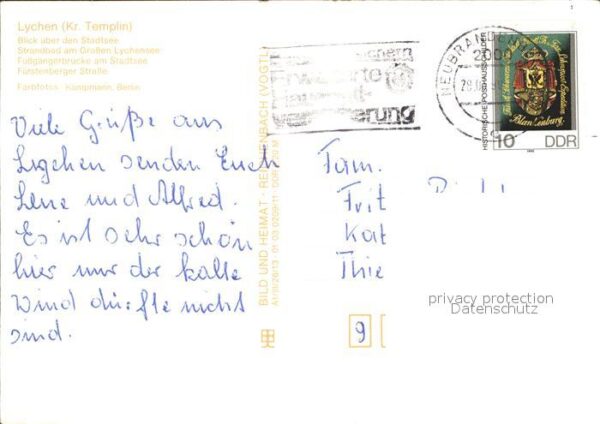 Lychen (Kr. Templin)
Blick über den Stadtsee
Strandbad am Großen Lychensee
Fußgängerbrücke am Stadtsee
Fürstenberger Straße
Farbfotos: Kühlmann, Berlin
Viele Grüße aus
Lychen senden Euch
Lene und Alfred.
Es ist sehr schön
hier nur der kalte
Wind dürfte nicht
sind.
BILD UND HEIMAT · REICHENBACH (VOGTL
NEUBRANDEN
HISTORISCHE POSTHAUSSCHILDER
Blankenburg.
10 DDR
Fam.
Frit
Kat
Thie
9
privacy protection
Datenschutz